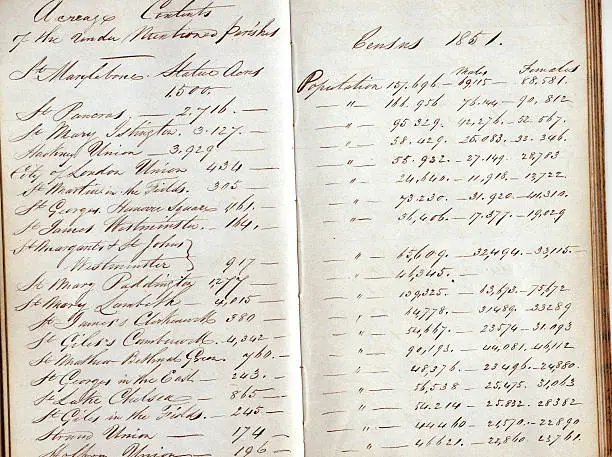 Acreage Contents
of the Under Mentioned Parishes
St Marylebone. Statue Acres
1.500.
St Pancras — 2.716. —
St Mary Islington. 3.127. —
Hackney Union 3.929 —
City of London Union 434 —
St Martin in the Fields. 305 —
St Georges Hanover Square 1161. —
St James Westminster — 164. —
St Margarets & St Johns
Westminster } 917 —
St Mary Paddington 1277 —
St Mary Lambeth — 4,015 —
St James's Clerkenwell 380 —
St Giles's Camberwell — 4,342 —
St Mathew Bethnal Green. 760. —
St Georges in the East — 243. —
St Luke Chelsea — 865 —
St Giles in the Fields. — 245 —
Strand Union — 174 —
Holborn Union — 196 —
Census 1851.
Males Females
Population 157.696 — 69115 — 88,581.
— " — 166.956 76.144 — 90,812
— " — 95.329. 42.276 — 52.567.
— " — 58.429. 25.083. 33.346.
— " — 55.932. — 27.149. 28,783
— " — 24,640. — 11,918. 13,722
— " — 73.230. — 31.920 — 41,310.
— " — 36,406. — 17.377 — 19,029
— " — 65,609. — 32,494. — 33,115.
— " — 46,345. —
— " — 139,325. — 63,673. — 75,672
— " — 64,778. — 31489. — 33289
— " — 54,667. — 23574 — 31.093
— " — 90,193. — 44,081. — 46,112
— " — 48,376 — 23,496. — 24880.
— " — 56,538 — 25,475. 31,063
— " — 54.214 — 25.832. 28382
— " — 44460 — 21,570. — 22890
— " — 46621. — 22,860. 23,761.